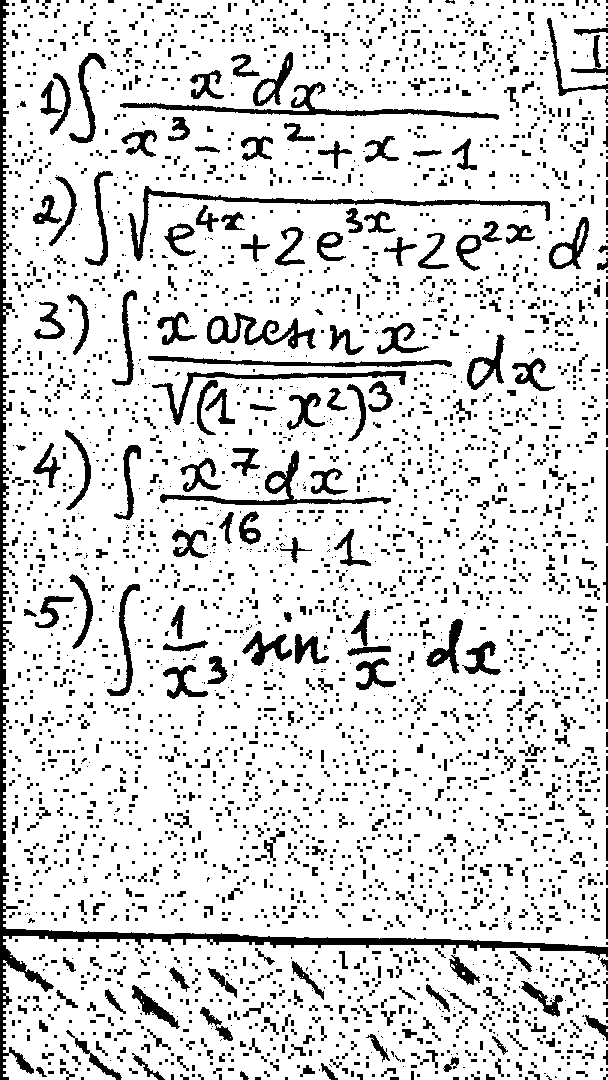 I
1) ∫ x²dx / (x³ - x² + x - 1)
2) ∫ √(e^{4x} + 2e^{3x} + 2e^{2x}) d
3) ∫ x arcsin x / √((1 - x²)³) dx
4) ∫ x⁷dx / (x¹⁶ + 1)
5) ∫ 1/x³ sin 1/x dx